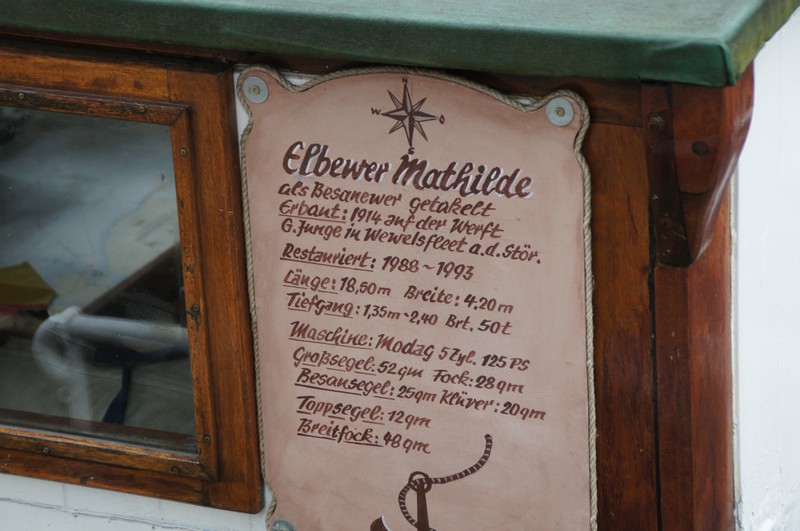 N
W O
S
Elbewer Mathilde
als Besanewer getakelt
Erbaut: 1914 auf der Werft
G. Junge in Wewelsfleet a.d. Stör.
Restauriert: 1988~1993
Länge: 18,50m Breite: 4.20m
Tiefgang: 1,35m-2,40 Brt. 50t
Maschine: Modag 5 Zyl. 125 PS
Großsegel: 52qm Fock: 28qm
Besansegel: 25qm Klüver: 20qm
Toppsegel: 12qm
Breitfock: 48qm